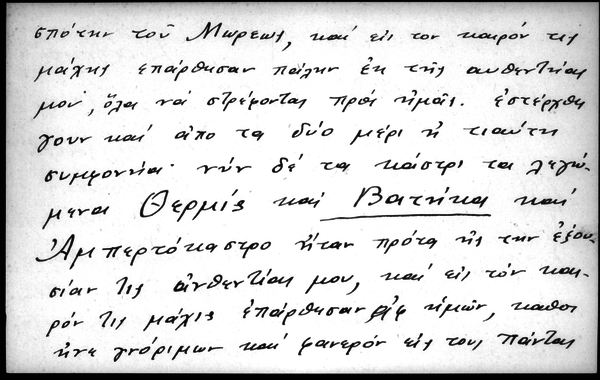 σπότην τοῦ Μωρεως, καί εἰς τον καιρόν τις
μάχης επάρθησαν πάλην ἐκ τῆς αυθεντήας
μου, ὅλα νά στρέφονται πρός ἡμᾶς. ἐστέρχθη
γουν καί ἀπο τα δύο μέρι ἡ τιαύτη
συμφοννία· νύν δέ τα κάστρι τα λεγώ-
μενα Θερμίς καί Βατήκα καί
Ἀμπερτόκαστρο ἤταν πρότα ἠς την ἐξου-
σίαν τις ἀνθεντίας μου, καί εἰς τόν και-
ρόν τις μάχις ἐπάρθησαν ἀφ ἡμῶν, καθος
ἠνε γνόριμων καί φανερόν εἰς τους πάντας